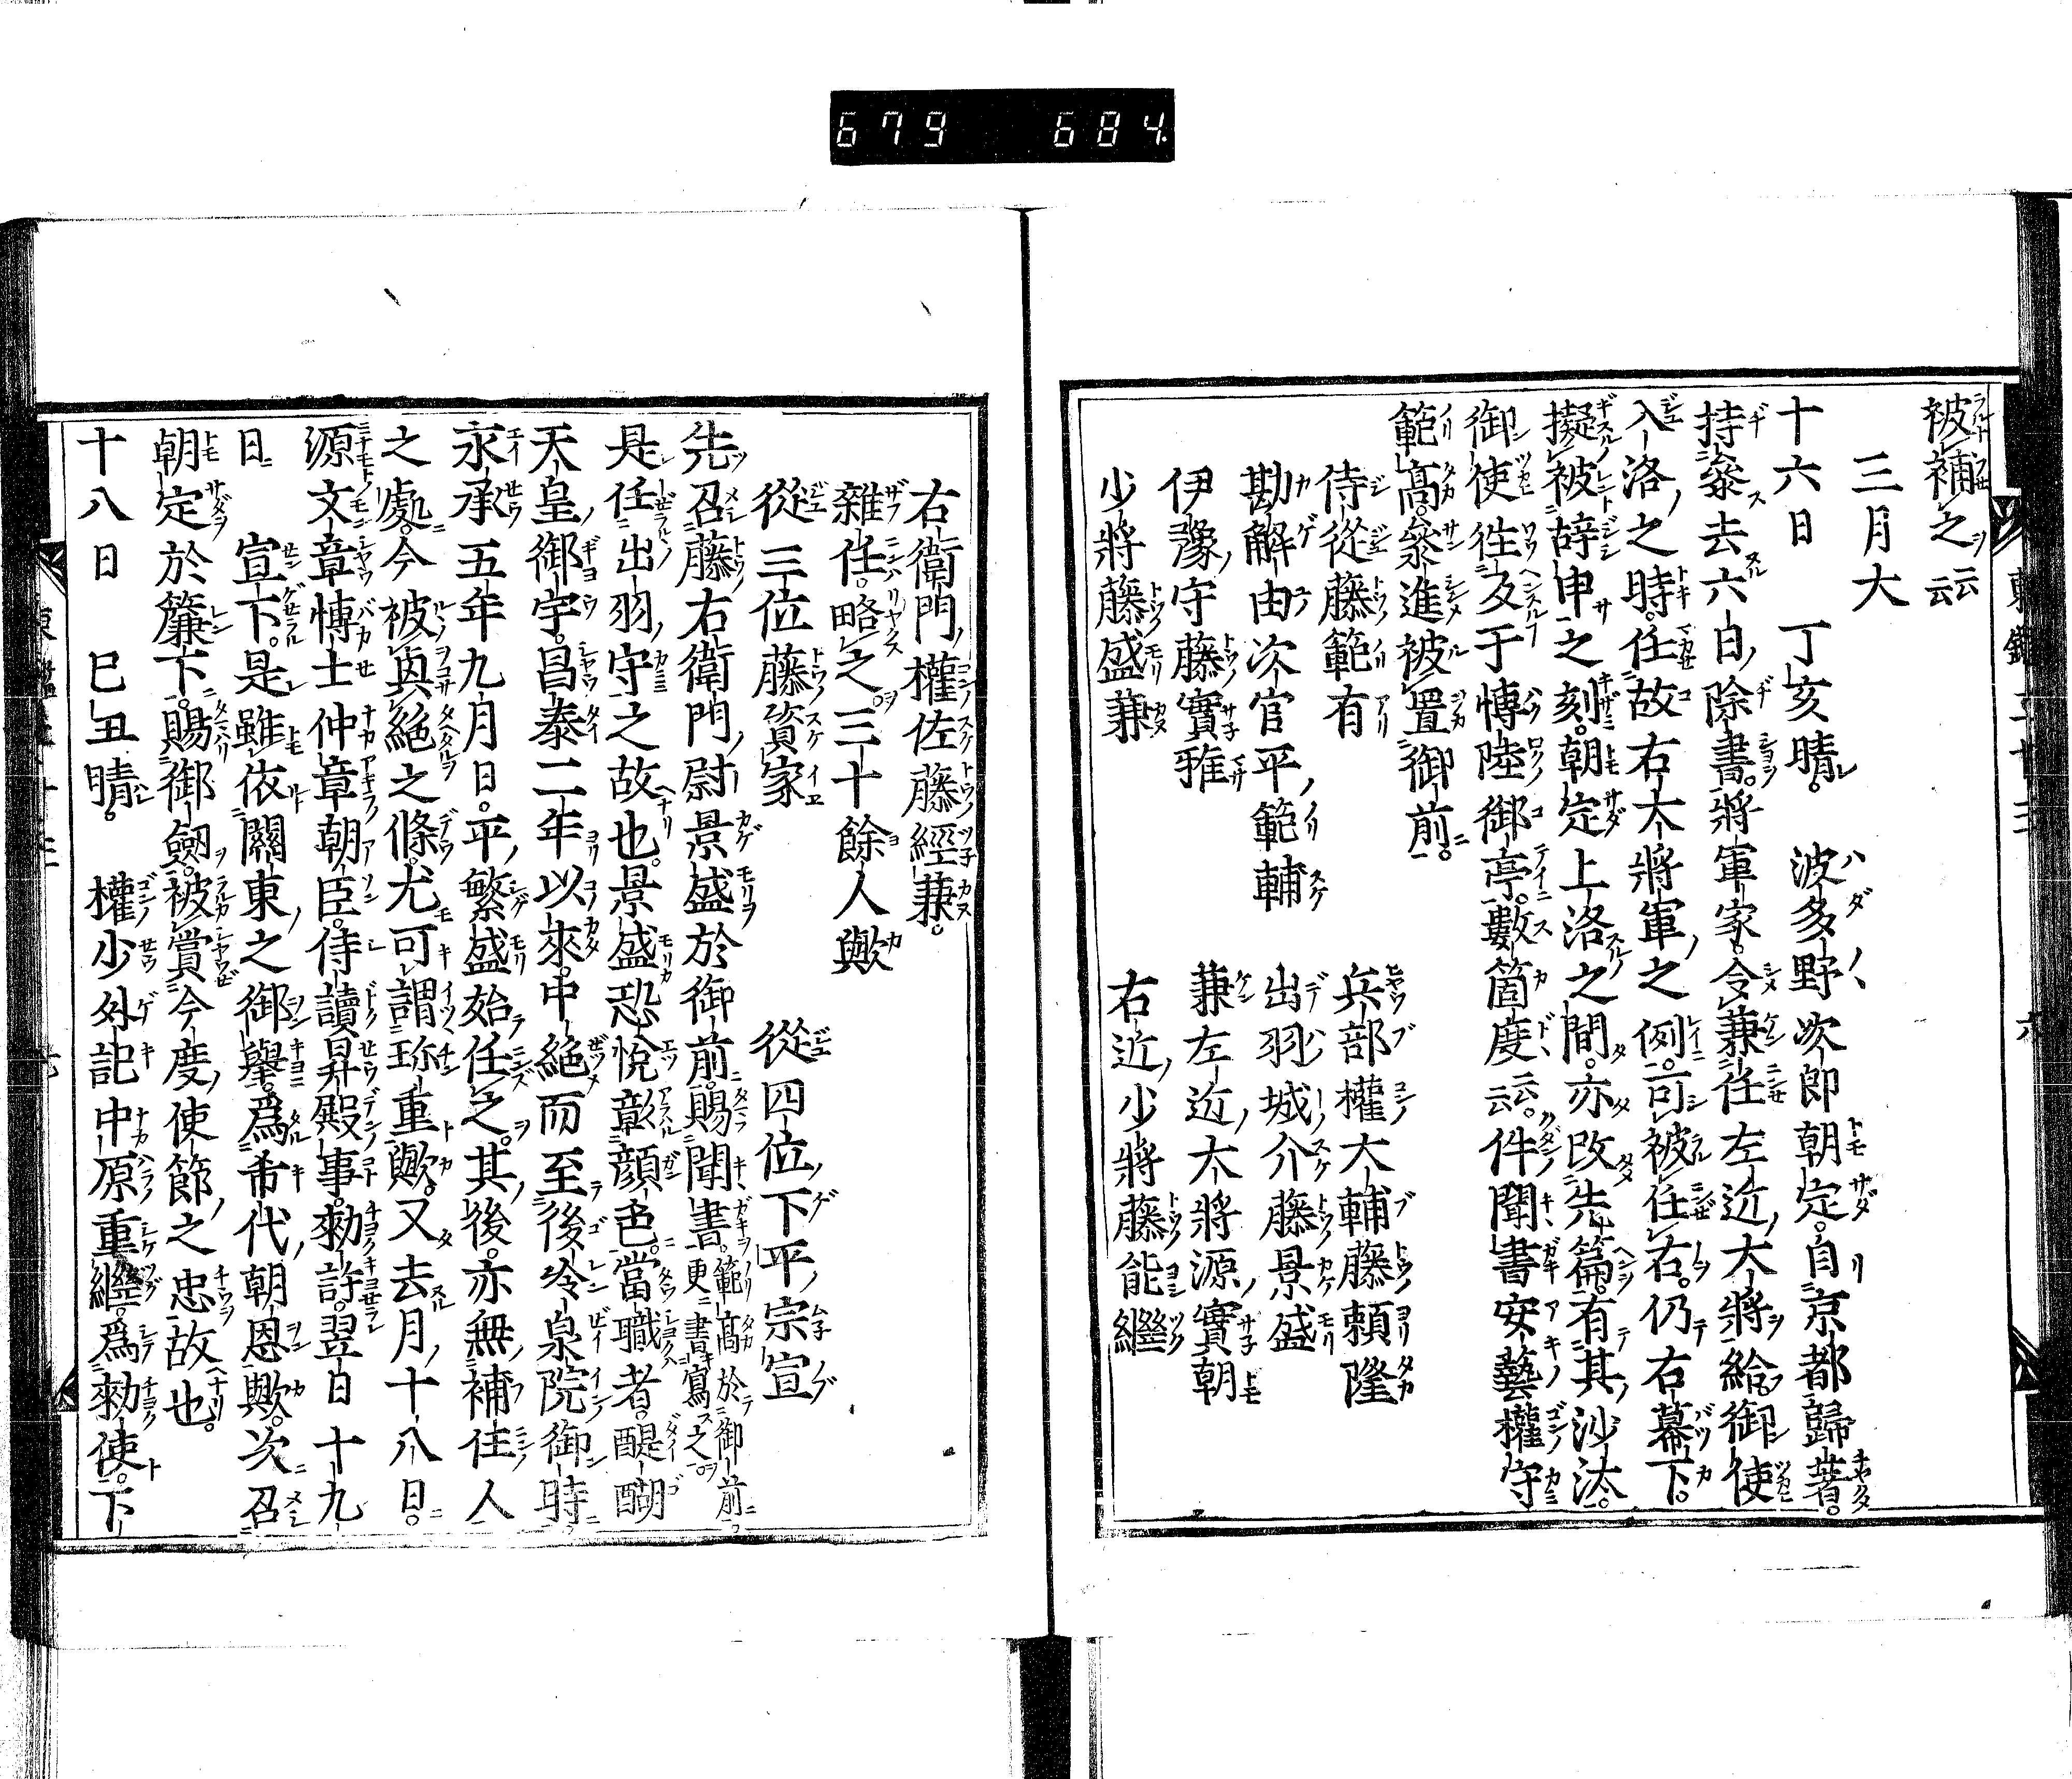 679 684
被補之云云
三月大
十六日 丁亥晴。 波多野次郎朝定。自京都歸著。
持參去六日除書。將軍家。令兼任左近大將給御使
入洛之時。任故右大將軍之例。可被任右。仍右幕下。
擬被辭申之刻。朝定上洛之間。亦改先篇。有其沙汰。
御使徃及于愽陸御亭。數箇度云云。件聞書安藝權守
範高。參進被置御前。
侍從藤範有 兵部權大輔藤賴隆
勘解由次官平範輔 出羽城介藤景盛
伊豫守藤實雅 兼左近大將源實朝
少將藤盛兼 右近少將藤能繼
右衛門權佐藤經兼。
雜任。略之三十餘人歟
從三位藤資家 從四位下平宗宣
先召藤右衛門尉景盛於御前。賜聞書。範高於御前。更書寫之。
是任出羽守之故也。景盛恐悅彰顔色。當職者。醍醐
天皇御宇。昌泰二年以來。中絶而至後冷泉院御時
永承五年九月日。平繁盛始任之。其後。亦無補任人
之處。今被與絶之條。尤可謂珎重歟。又去月十八日。
源文章博士仲章朝臣。侍讀昇殿事。勅許。翌日十九
日 宣下。是雖依關東之御擧。爲希代朝恩歟。次召
朝定於簾下。賜御劔。被賞今度使節之忠故也。
十八日 巳丑晴。 權少外記中原重繼。爲勅使。下